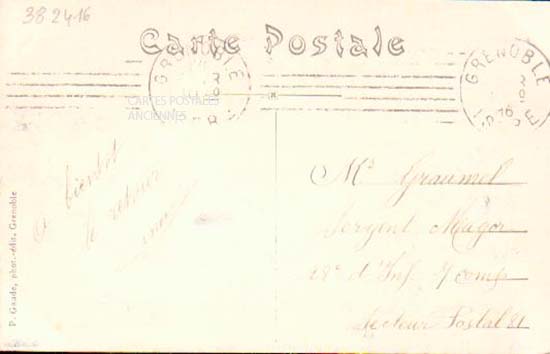 38 24-16
Carte Postale
GRENOBLE
GRENOBLE
CARTES POSTALES
ANCIENNES
a bientôt
le retour
Mr Graumel
Sergent Major
28e d'Inf. 7 comp
Secteur Postal 81
P. Gaude, phot.-édit. Grenoble